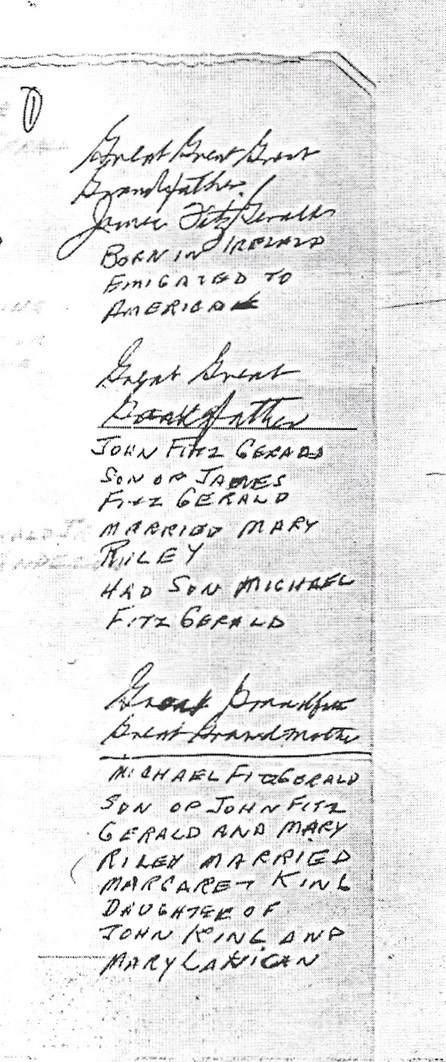 1
Great Great Great
Grandfather
James Fitz Gerald
BORN IN IRELAND
EMIGATED TO
AMERICA
Great Great
Grandfather
JOHN FITZ GERALD
SON OF JAMES
FITZ GERALD
MARRIED MARY
RILEY
HAD SON MICHAEL
FITZ GERALD
Great Grandfath
Great Grandmother
MICHAEL FITZGERALD
SON OF JOHN FITZ
GERALD AND MARY
RILEY MARRIED
MARGARET KING
DAUGHTER OF
JOHN KING AND
MARY LANIGAN